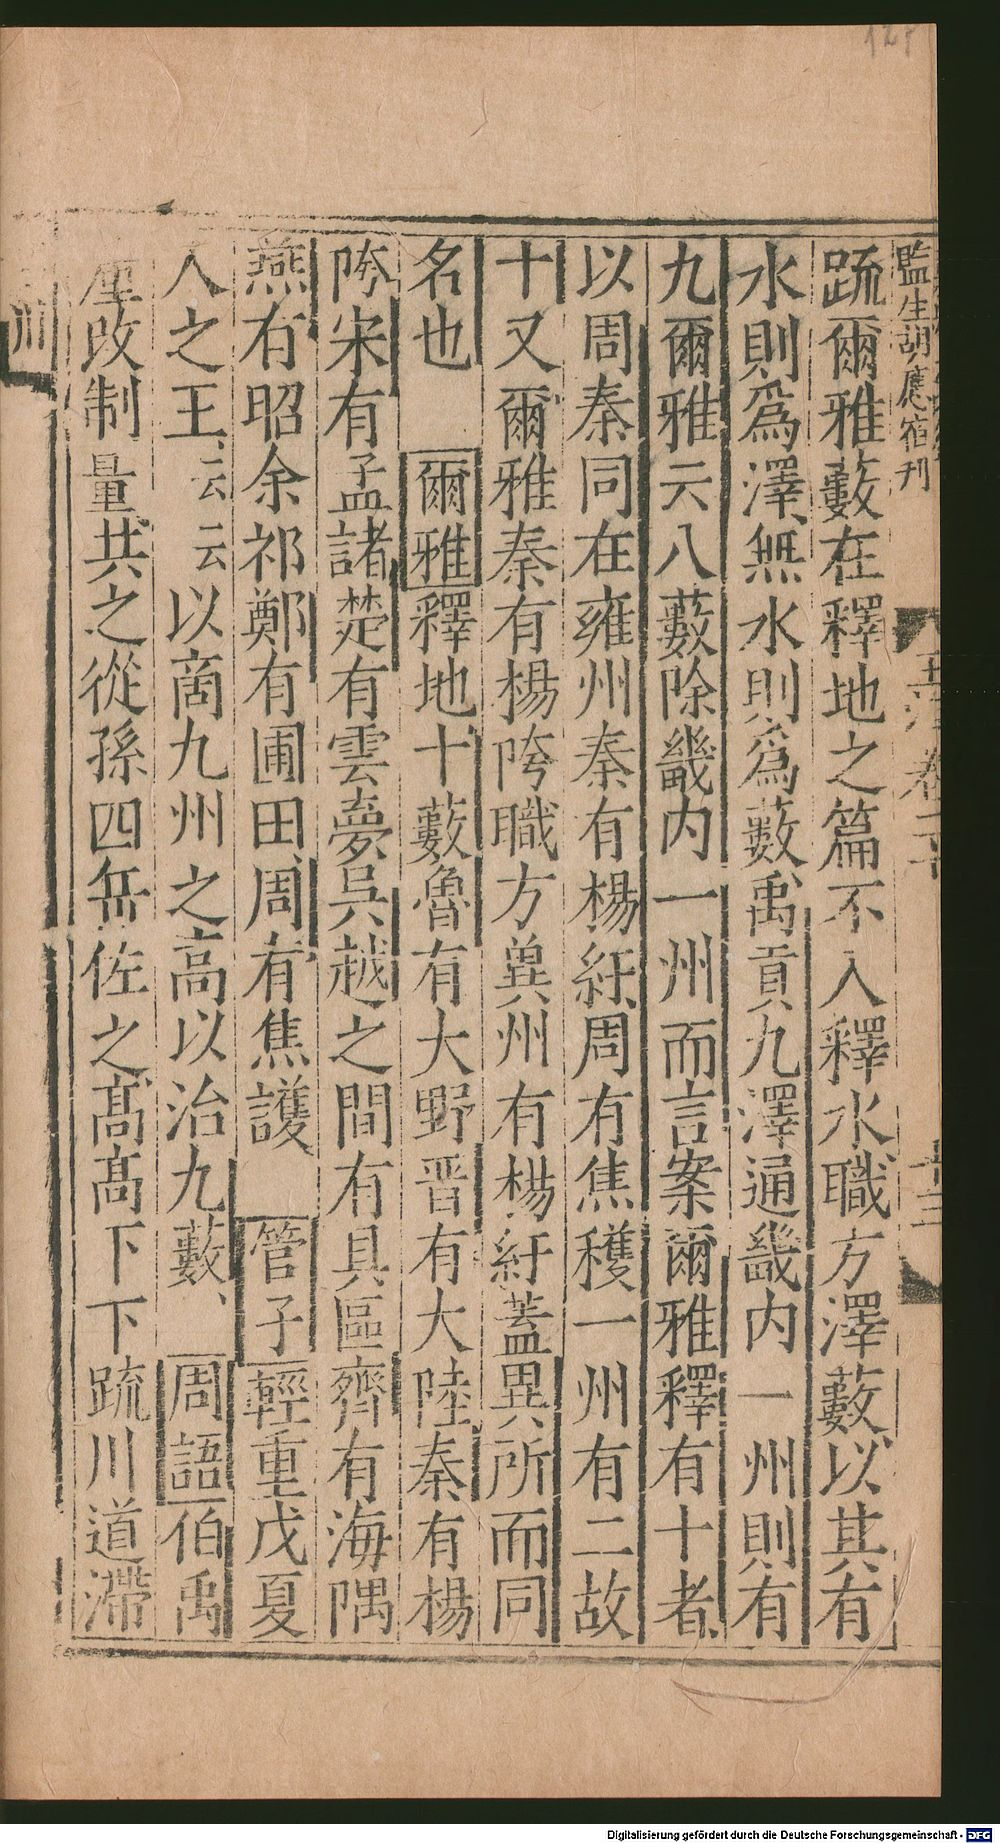 監生胡應宿刊
玉海卷二十
十三
䟽爾雅藪在釋地之篇不入釋水職方澤藪以其有
水則爲澤無水則爲藪禹貢九澤通畿内一州則有
九爾雅云八藪除畿内一州而言案爾雅釋有十者
以周秦同在雍州秦有楊紆周有焦穫一州有二故
十又爾雅秦有楊陓職方兾州有楊紆蓋異所而同
名也 爾雅釋地十藪魯有大野晋有大陸秦有楊
陓宋有孟諸楚有雲夢吳越之間有具區齊有海隅
燕有昭余祁鄭有圃田周有焦護 管子輕重戊夏
人之王云云以商九州之高以治九藪 周語伯禹
釐改制量共之從孫四岳佐之高高下下䟽川道滯
Digitalisierung gefördert durch die Deutsche Forschungsgemeinschaft - DFG